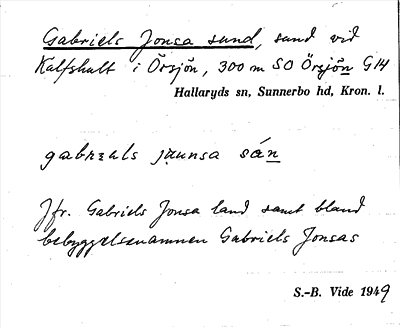 Gabriels Jonsa sund, sund vid
Kalfshult i Örsjön, 300 m SO Örsjön G14
Hallaryds sn, Sunnerbo hd, Kron. l.
gabrɛals jʊunsa sán
Jfr. Gabriels Jonsa land samt bland
bebyggelsenamnen Gabriels Jonsas
S.-B. Vide 1949